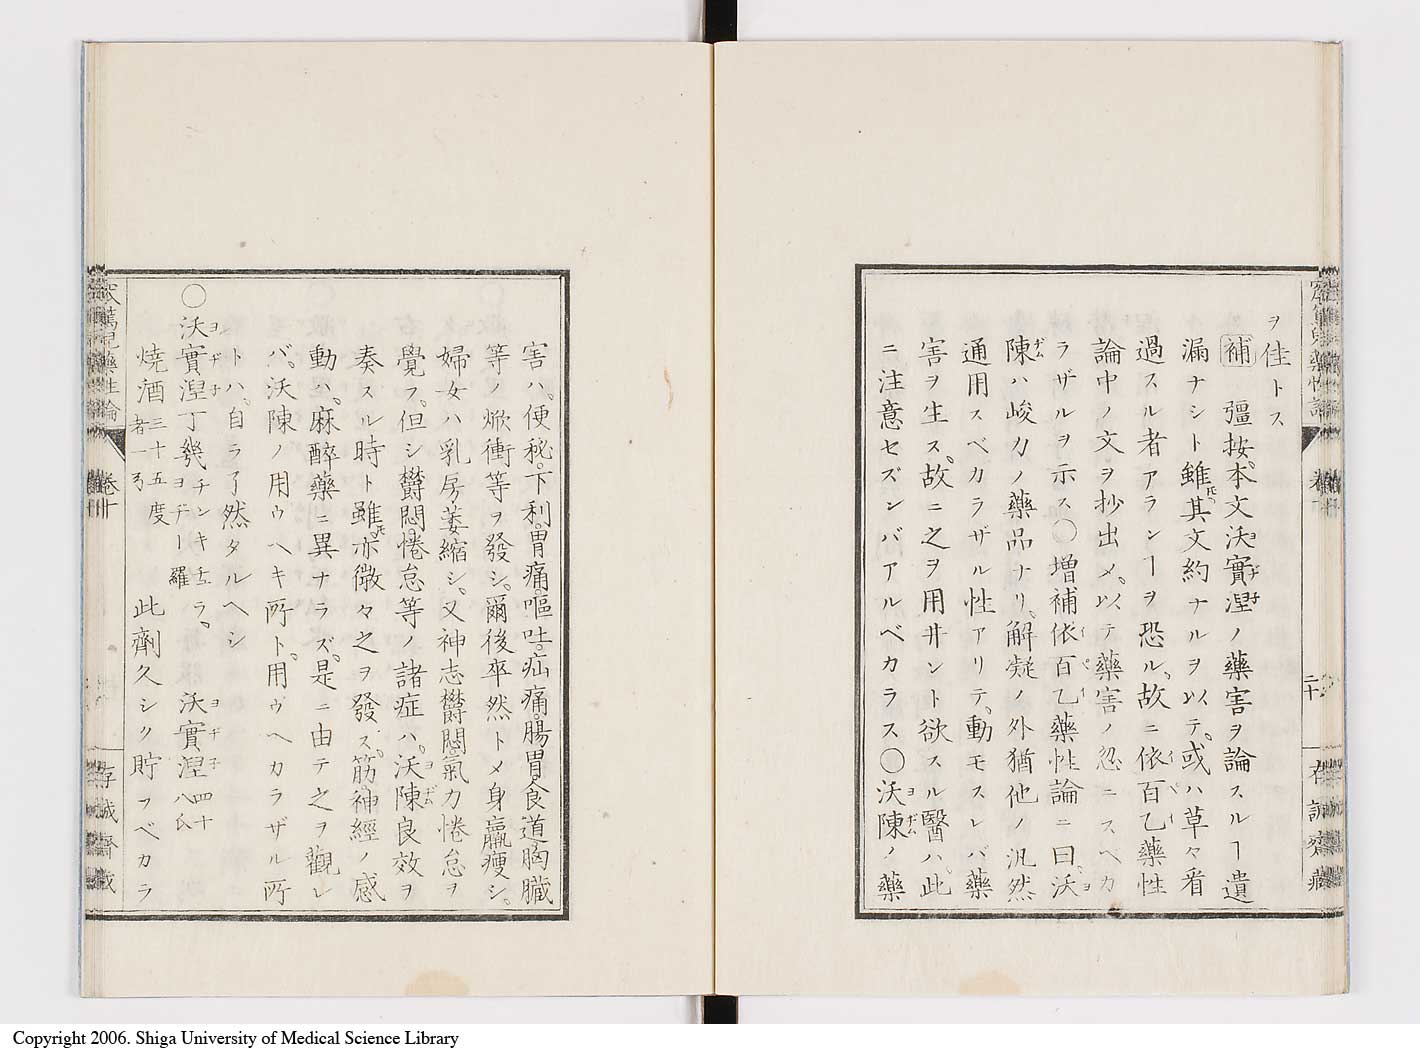 ヲ佳トス
補 彊按、本文沃實涅ノ藥害ヲ論スルヿ遺
漏ナシト雖𪜈其文約ナルヲ以テ、或ハ草々看
過スル者アランヿヲ恐ル、故ニ依百乙藥性
論中ノ文ヲ抄出メ、以テ藥害ノ忽ニスベカ
ラザルヲ示ス○増補依百乙藥性論ニ曰、沃
陳ハ峻力ノ藥品ナリ、解凝ノ外猶他ノ汎然
通用スベカラザル性アリテ、動モスレバ藥
害ヲ生ス、故ニ之ヲ用井ント欲スル醫ハ、此
ニ注意セズンバアルベカラス○沃陳ノ藥
二十
害ハ、便秘、下利、胃痛、嘔吐、疝痛、腸胃食道胸臓
等ノ焮衝等ヲ發シ、爾後卒然トメ身羸痩シ、
婦女ハ乳房萎縮シ、又神志欝悶、氣力惓怠ヲ
覺フ、但シ欝悶、惓怠等ノ諸症ハ、沃陳良效ヲ
奏スル時ト雖𪜈亦微々之ヲ發ス、筋神經ノ感
動ハ、麻醉藥ニ異ナラズ、是ニ由テ之ヲ觀レ
バ、沃陳ノ用ウヘキ所ト、用ウヘカラザル所
トハ、自ラ了然タルヘシ
○沃實涅丁幾ヨヂーチンキチュラ、羅 沃實涅四十八氏
燒酒三十五度者一弓 此劑久シク貯フベカラ
窊篤兒藥性論
卷十
存誠齋藏